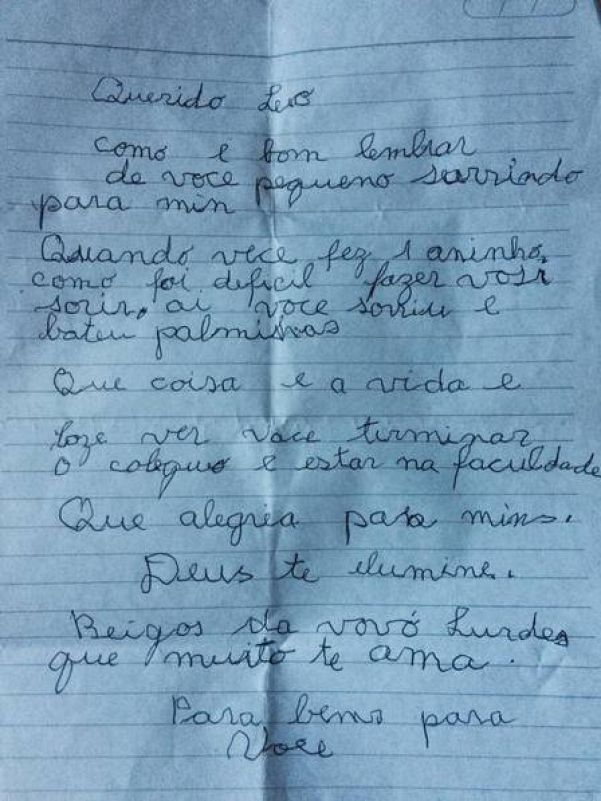 Querido Leo
como e bom lembrar
de voce pequeno sorrindo
para min
Quando voce fez 1 aninho,
como foi dificil fazer vose
sorir, ai voce sorriu e
bateu palminhas
Que coisa e a vida e
hoze ver voce terminar
o coleguo e estar na faculdade
Que alegria para mim.
Deus te elumine.
Beigos da vovó Lurdes
que muito te ama.
Para bens para
Voce